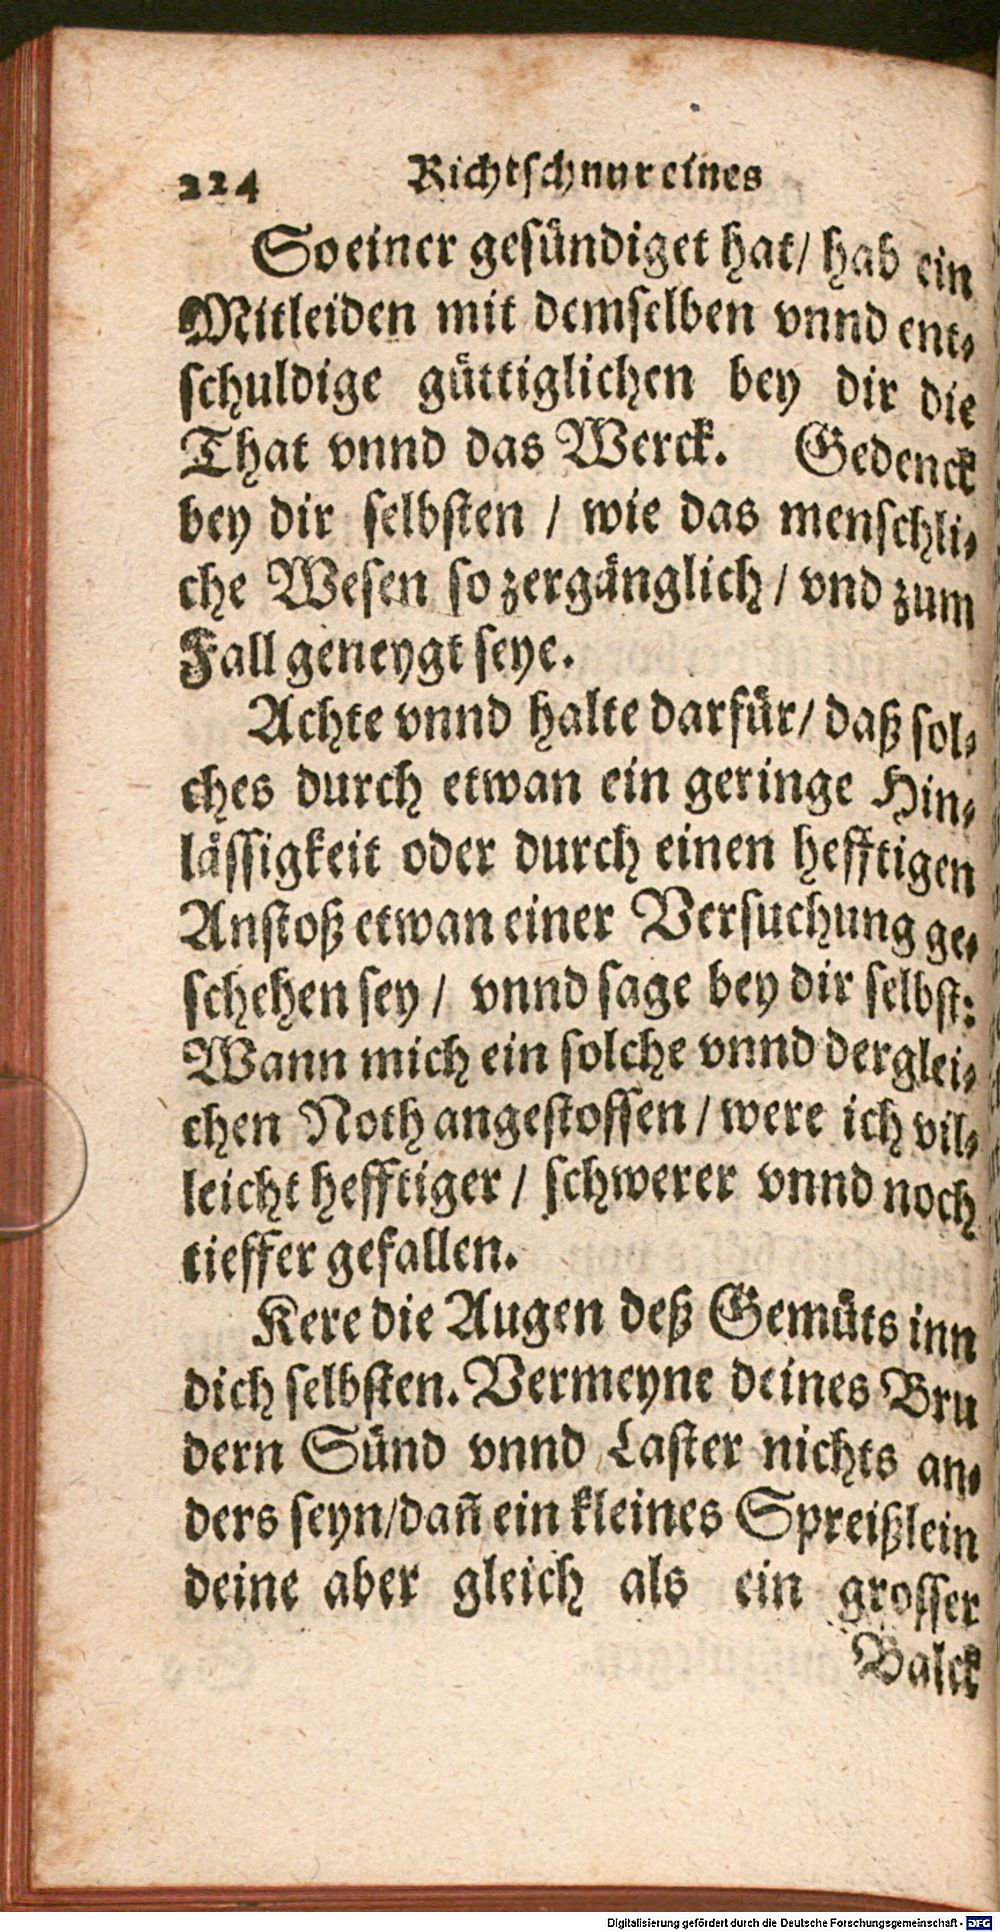 224 Richtschnur eines
So einer gesündiget hat/ hab ein
Mitleiden mit demselben vnnd ent⸗
schuldige güttiglichen bey dir die
That vnnd das Werck. Gedenck
bey dir selbsten / wie das menschli⸗
che Wesen so zergänglich / vnd zum
Fall geneygt seye.
Achte vnnd halte darfür/ daß sol⸗
ches durch etwan ein geringe Hin⸗
lässigkeit oder durch einen hefftigen
Anstoß etwan einer Versuchung ge⸗
schehen sey / vnnd sage bey dir selbst:
Wann mich ein solche vnnd derglei⸗
chen Noth angestossen / were ich vil⸗
leicht hefftiger / schwerer vnnd noch
tieffer gefallen.
Kere die Augen deß Gemüts inn
dich selbsten. Vermeyne deines Bru
dern Sünd vnnd Laster nichts an⸗
ders seyn/dañ ein kleines Spreißlein
deine aber gleich als ein grosser
Balck
Digitalisierung gefördert durch die Deutsche Forschungsgemeinschaft - DFG